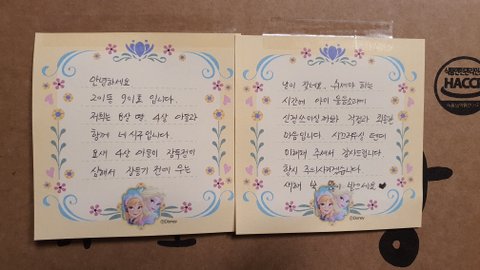 안녕하세요
20이동 9이호 입니다.
저희는 8살 딸, 4살 아들과
함께 네 식구입니다
요새 4살 아들이 잠투정이
심해서 잠들기 전에 우는
날이 잦네요. 주무셔야 하는
시간에 아이 울음소리에
신경쓰이실까봐 걱정과 죄송한
마음입니다 시끄러우실 텐데
이해해 주셔서 감사드립니다
항상 주의시키겠습니다
새해 복 많이 받으세요
©Disney
©Disney
식품안전관리인증
HACCP